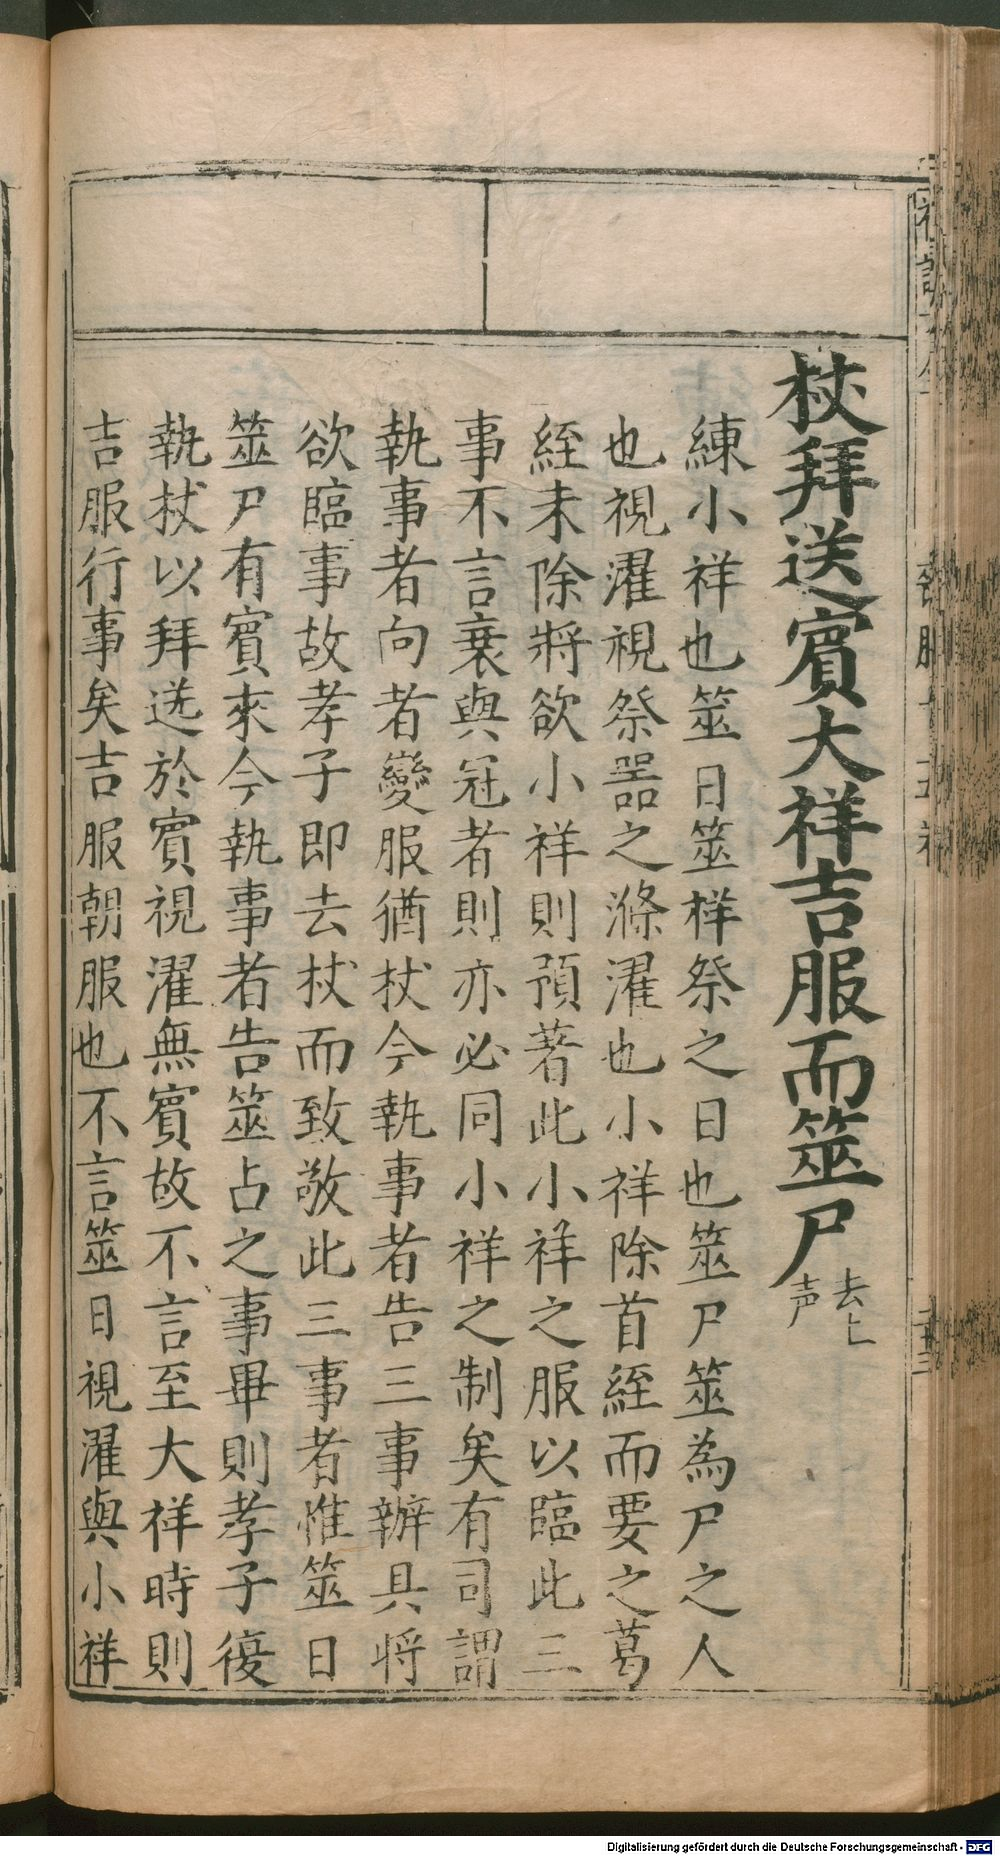 杖拜送賓大祥吉服而筮尸去上声
練小祥也筮日筮祥祭之日也筮尸筮為尸之人
也視濯視祭器之滌濯也小祥除首絰而要之葛
絰未除將欲小祥則預著此小祥之服以臨此三
事不言衰與冠者則亦必同小祥之制矣有司謂
執事者向者變服猶杖今執事者告三事辦具将
欲臨事故孝子即去杖而致敬此三事者惟筮日
筮尸有賓來今執事者告筮占之事畢則孝子復
執杖以拜送於賓視濯無賓故不言至大祥時則
吉服行事矣吉服朝服也不言筮日視濯與小祥
Digitalisierung gefördert durch die Deutsche Forschungsgemeinschaft - DFG